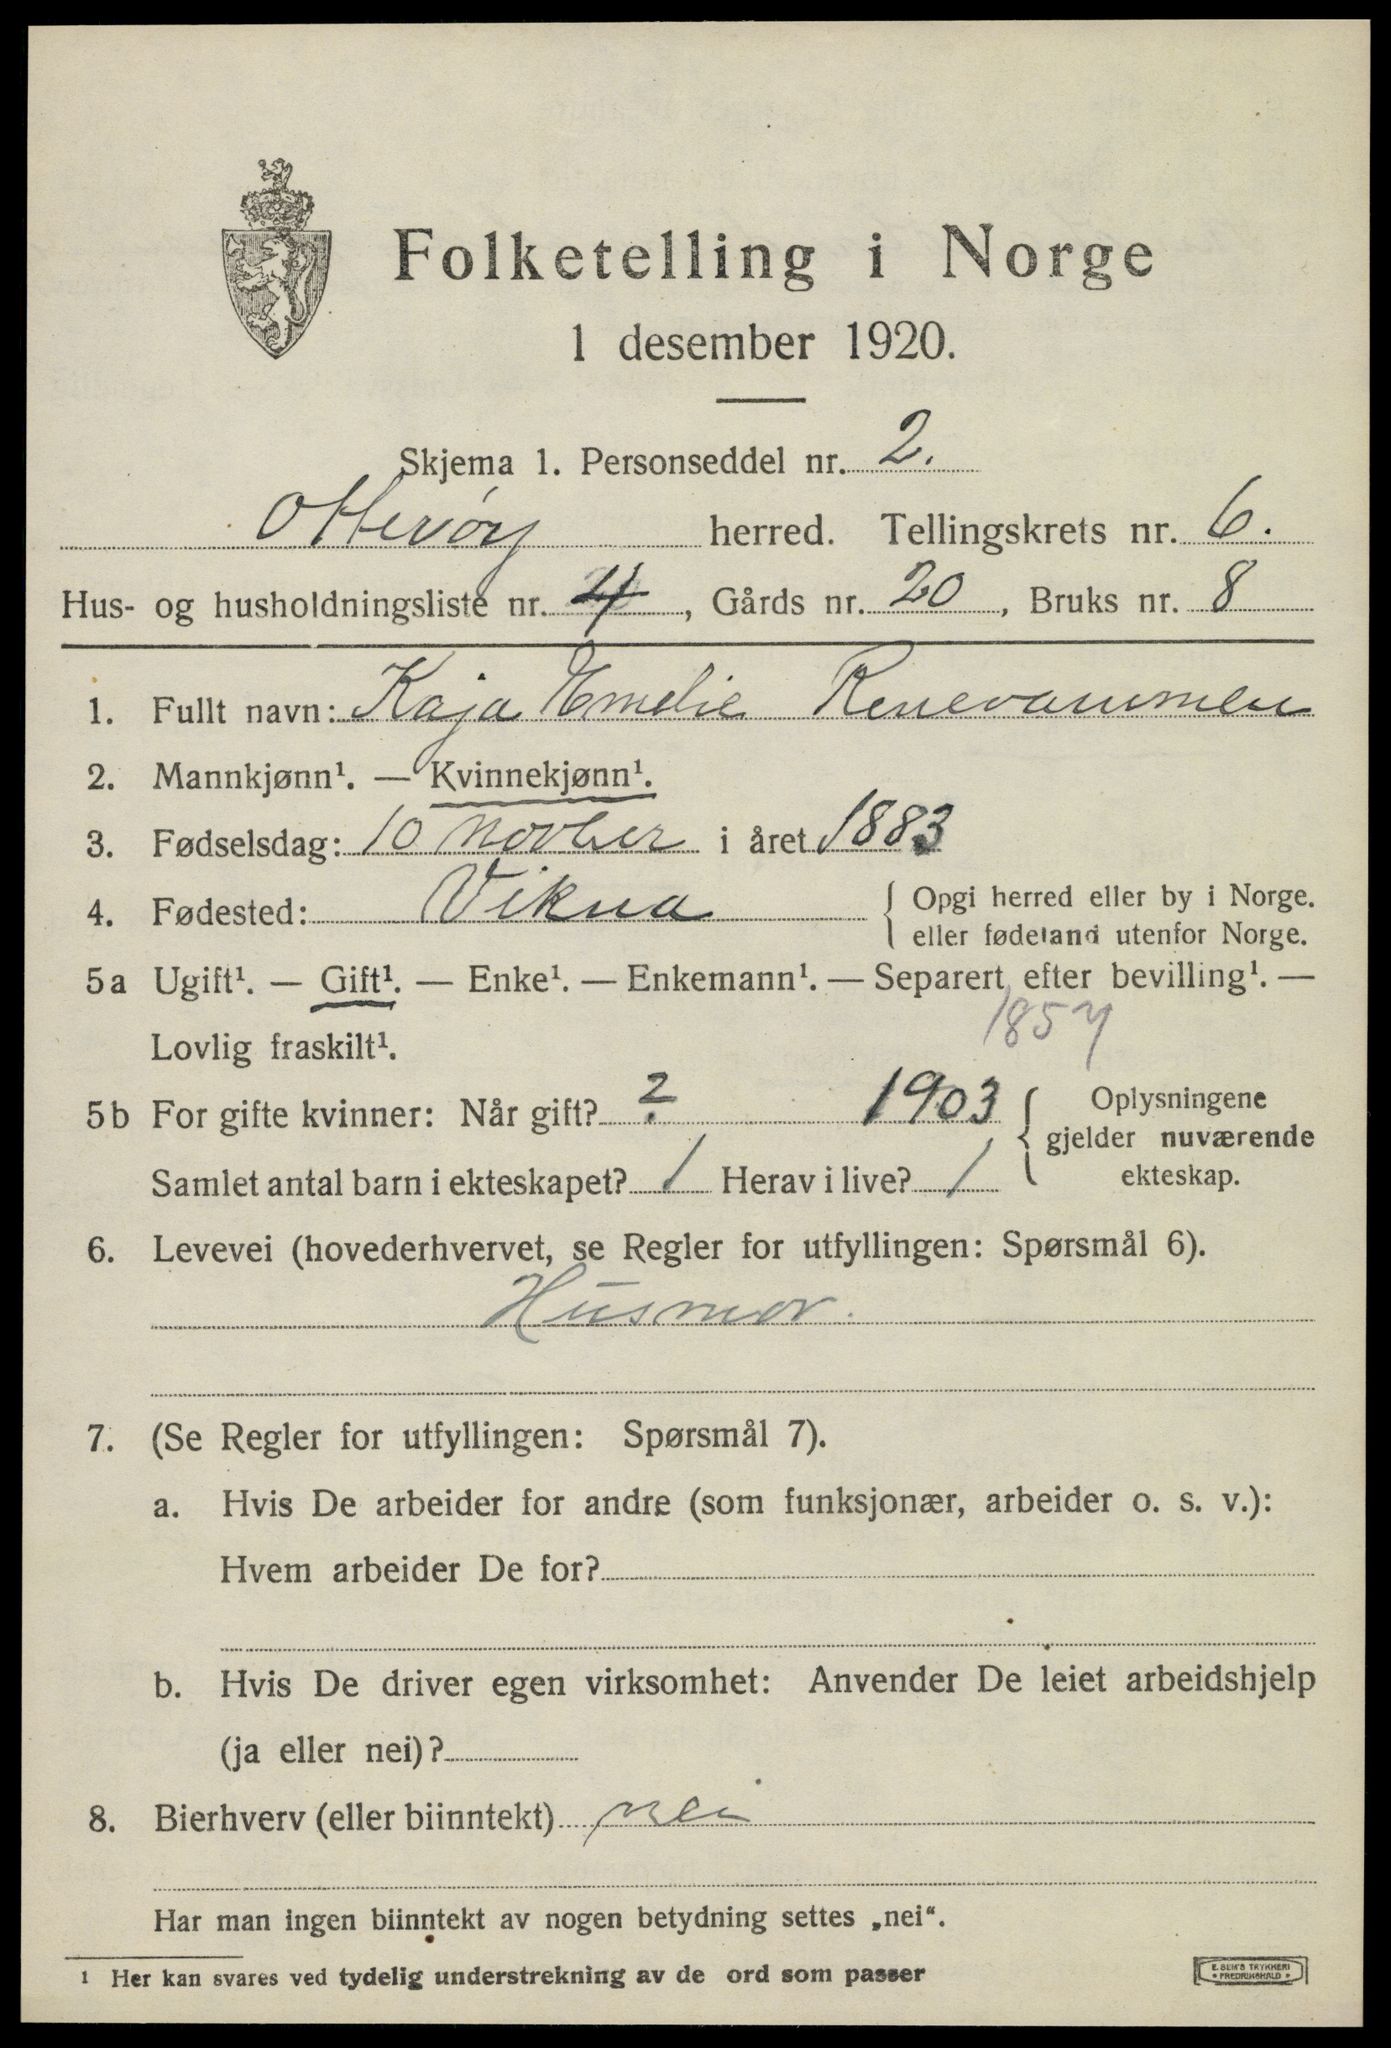 Folketelling i Norge
1 desember 1920.
Skjema 1. Personseddel nr. 2.
Otterøy herred. Tellingskrets nr. 6.
Hus- og husholdningsliste nr. 4, Gårds nr. 20, Bruks nr. 8
1. Fullt navn: Kaja Emelie
2. Mannkjønn¹. — Kvinnekjønn¹.
3. Fødselsdag: 10 novber i året 1883
4. Fødested: Vikna { Opgi herred eller by i Norge.
eller fødeland utenfor Norge.
5a Ugift¹. — Gift¹. — Enke¹. — Enkemann¹. — Separert efter bevilling¹. —
Lovlig fraskilt¹. 1857
5b For gifte kvinner: Når gift? ? 1903 { Oplysningene
gjelder nuværende
Samlet antal barn i ekteskapet? 1 Herav i live? 1 ekteskap.
6. Levevei (hovederhvervet, se Regler for utfyllingen: Spørsmål 6).
Husmor.
7. (Se Regler for utfyllingen: Spørsmål 7).
a. Hvis De arbeider for andre (som funksjonær, arbeider o. s. v.):
Hvem arbeider De for?
b. Hvis De driver egen virksomhet: Anvender De leiet arbeidshjelp
(ja eller nei)?
8. Bierhverv (eller biinntekt) nei
Har man ingen biinntekt av nogen betydning settes „nei“.
¹ Her kan svares ved tydelig understrekning av de ord som passer
E. SEM'S TRYKKERI
• FREDRIKSHALD •